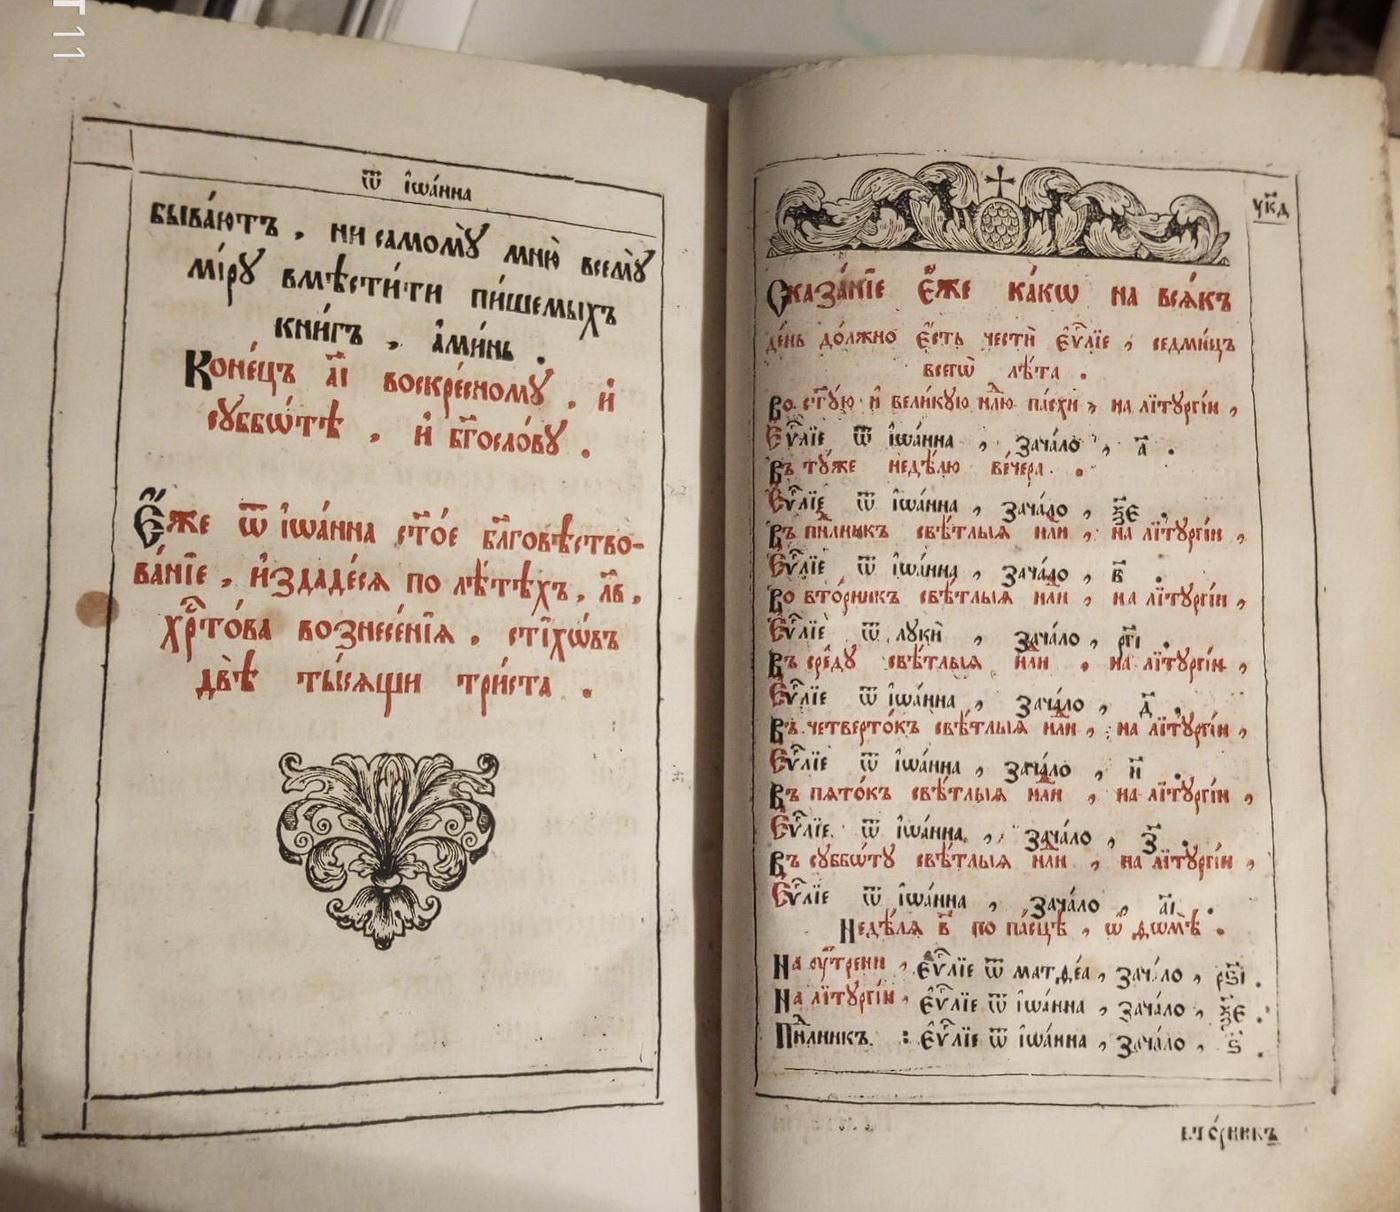 T11
ѿ і҆ѡа́нна
быва́ютъ , ни самомꙋ̀ мню̀ всемꙋ̀
мі́рꙋ вмѣсти́ти пи́шемыхъ
кни́гъ , а҆ми́нь .
Коне́цъ а҃і воскре́сномꙋ . и҆
сꙋббѡ́тѣ , и҆ бг҃осло́вꙋ .
Є҆́же ѿ і҆ѡа́нна ст҃о́е бл҃говѣство-
ва́нїе , и҆здаде́сѧ по лѣ́тѣхъ , л҃в ,
хрⷭ҇то́ва вознесе́нїѧ . стїхѡ́въ
двѣ̀ ты́сѧщи три́ста .
ук҃д
Сказа́нїе є҆́же ка́кѡ на всѧ́къ
де́нь до́лжно є҆́сть че́сти є҆ѵⷢ҇лїе , седми́цъ
всегѡ̀ лѣ́та .
Во ст҃ꙋ́ю и҆ вели́кꙋю нⷣлю па́схи , на лїтꙋргі́и ,
Є҆ѵⷢ҇лїе ѿ і҆ѡа́нна , зача́ло , а҃ .
Въ тꙋ́же недѣ́лю ве́чера .
Є҆ѵⷢ҇лїе ѿ і҆ѡа́нна , зача́ло , ѯ҃е .
Въ пнⷣлникъ свѣ́тлыѧ нⷣли , на лїтꙋргі́и ,
Є҆ѵⷢ҇лїе ѿ і҆ѡа́нна , зача́ло , в҃ .
Во вто́рникъ свѣ́тлыѧ нⷣли , на лїтꙋргі́и ,
Є҆ѵⷢ҇лїе ѿ лꙋкѝ , зача́ло , рг҃і .
Въ сре́дꙋ свѣ́тлыѧ нⷣли . на лїтꙋргі́и ,
Є҆ѵⷢ҇лїе ѿ і҆ѡа́нна , зача́ло , д҃ .
Въ четверто́къ свѣ́тлыѧ нⷣли , на лїтꙋргі́и ,
Є҆ѵⷢ҇лїе ѿ і҆ѡа́нна , зача́ло , и҃ .
Въ пѧто́къ свѣ́тлыѧ нⷣли , на лїтꙋргі́и ,
Є҆ѵⷢ҇лїе ѿ і҆ѡа́нна , зача́ло , з҃ .
Въ сꙋббѡ́тꙋ свѣ́тлыѧ нⷣли , на лїтꙋргі́и ,
Є҆ѵⷢ҇лїе ѿ і҆ѡа́нна , зача́ло , а҃і .
Недѣ́лѧ в҃ по па́сцѣ , ѡ҆ ѳѡмѣ̀ .
На ѹ҆́трени , є҆ѵⷢ҇лїе ѿ матѳе́а , зача́ло , рѕ҃і .
На лїтꙋргі́и , є҆ѵⷢ҇лїе ѿ і҆ѡа́нна , зача́ло , ѯ҃е .
Пнⷣлникъ : є҆ѵⷢ҇лїе ѿ і҆ѡа́нна , зача́ло , ѕ҃ .
вто́рникъ